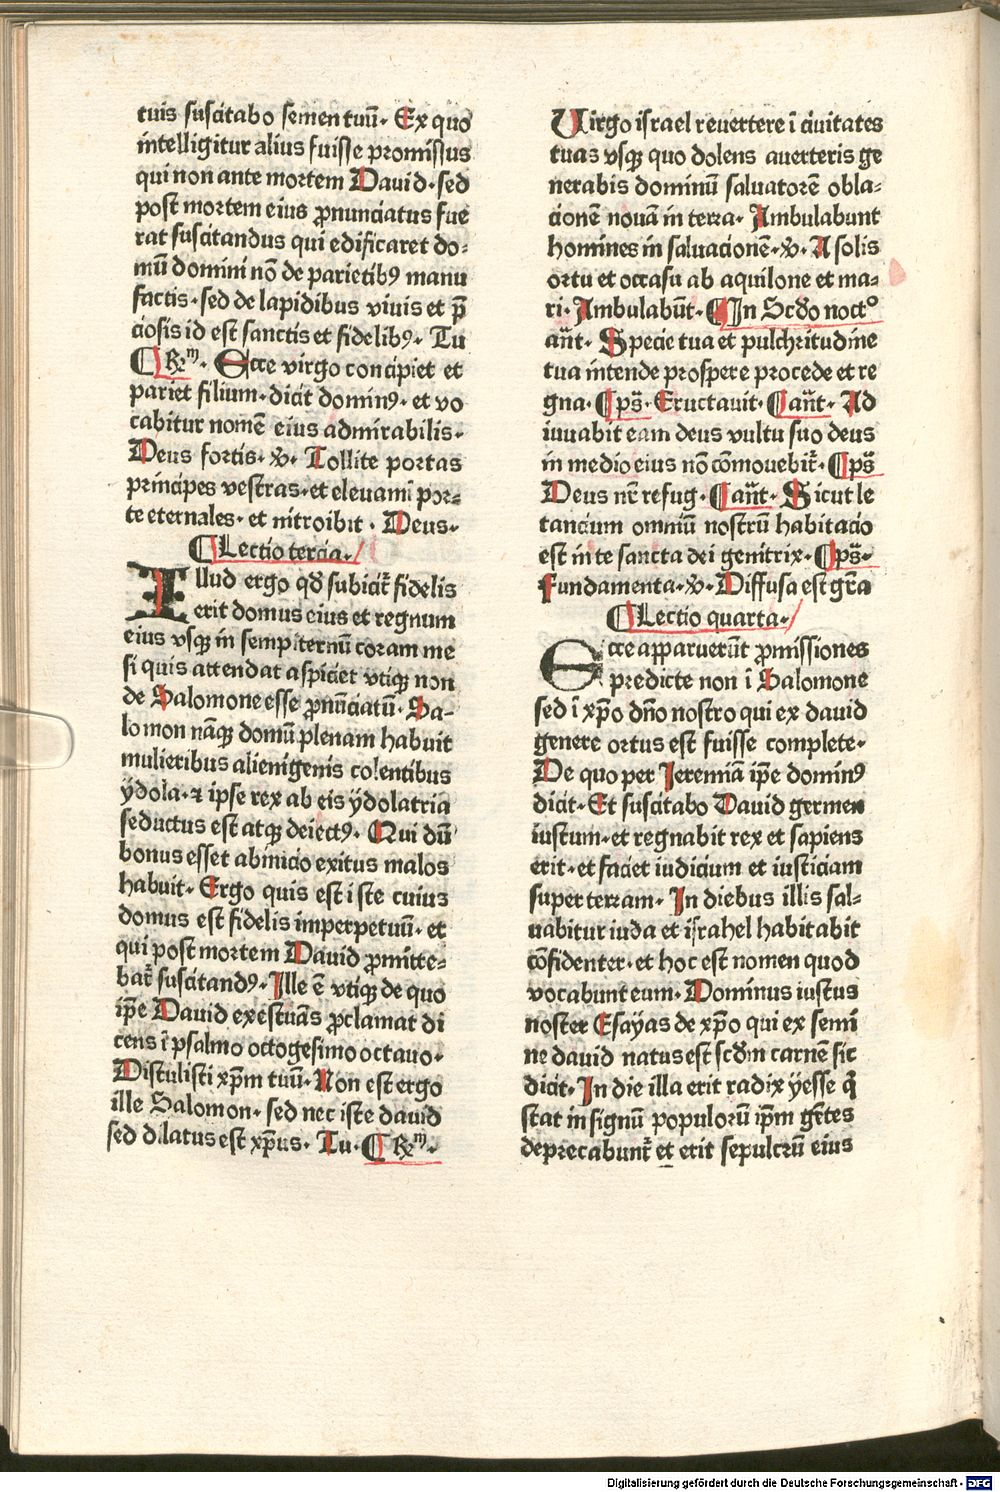 tuis suscitabo semen tuū. Ex quo
intelligitur alius fuisse promissus
qui non ante mortem David. sed
post mortem eius ꝓnunciatus fue
rat suscitandus qui edificaret do⸗
mū domini nō de parietibꝰ manu
factis. sed de lapidibus viuis et p̄
ciosis id est sanctis et fidelibꝰ. Tu
¶ R̷ᵐ. Ecce virgo concipiet et
pariet filium. dicit dominꝰ. et vo
cabitur nomē eius admirabilis.
Deus fortis. v̷. Tollite portas
principes vestras. et eleuamī por⸗
te eternales. et nitroibit. Deus.
¶ Lectio tercia.
Illud ergo qd̄ subicit̄ fidelis
erit domus eius et regnum
eius vsqꝫ in sempiternū coram me
si quis attendat aspiciet vtiqꝫ non
de Salomone esse ꝓnūciatū. Sa⸗
lomon nāqꝫ domū plenam habuit
mulieribus alienigenis colentibus
ÿdola. ⁊ ipse rex ab eis ÿdolatria
seductus est atqꝫ deiectꝰ. Qui dū
bonus esset ab inicio exitus malos
habuit. Ergo quis est iste cuius
domus est fidelis imperpetuū. et
qui post mortem Dauid ꝓmitte⸗
bat̄ suscitandꝰ. Ille ē vtiqꝫ de quo
ip̄e Dauid exestuās ꝓclamat di
cens ī psalmo octogesimo octauo.
Distulisti xp̄m tuū. Non est ergo
ille Salomon. sed nec iste dauid
sed dilatus est xp̄us. Tu. ¶ R̷ᵐ.
Uirgo israel reuertere ī ciuitates
tuas vsqꝫ quo dolens auerteris ge
nerabis dominū saluatorē obla⸗
cionē nouā in terra. Ambulabunt
homines in saluacionē. v̷. A solis
ortu et occasu ab aquilone et ma⸗
ri. Ambulabūt. ¶ In Scd̄o noctº
an̄t. Specie tua et pulchritudine
tua intende prospere procede et re
gna. ¶ ps̄. Eructauit. ¶ an̄t. Ad
iuuabit eam deus vultu suo deus
in medio eius nō cōmouebit̄. ¶ ps̄
Deus nr̄ refug. ¶ an̄t. Sicut le
tancium omniū nostrū habitacio
est in te sancta dei genitrix. ¶ ps̄.
Fundamenta. v̷. Diffusa est gr̄a
¶ Lectio quarta.
Ecce apparuerūt ꝓmissiones
predicte non ī Salomone
sed ī xp̄o dn̄o nostro qui ex dauid
genere ortus est fuisse complete.
De quo per Jeremiā ip̄e dominꝰ
dicit. Et suscitabo Dauid germen
iustum. et regnabit rex et sapiens
erit. et faciet iudicium et iusticiam
super terram. In diebus illis sal⸗
uabitur iuda et israhel habitabit
cōfidenter. et hoc est nomen quod
vocabunt eum. Dominus iustus
noster Esaÿas de xp̄o qui ex semi
ne dauid natus est scd̄m carnē sic
dicit. In die illa erit radix ÿesse q̄
stat in signū populorū ip̄m gētes
deprecabunt̄ et erit sepulcrū eius
Digitalisierung gefördert durch die Deutsche Forschungsgemeinschaft - DFG